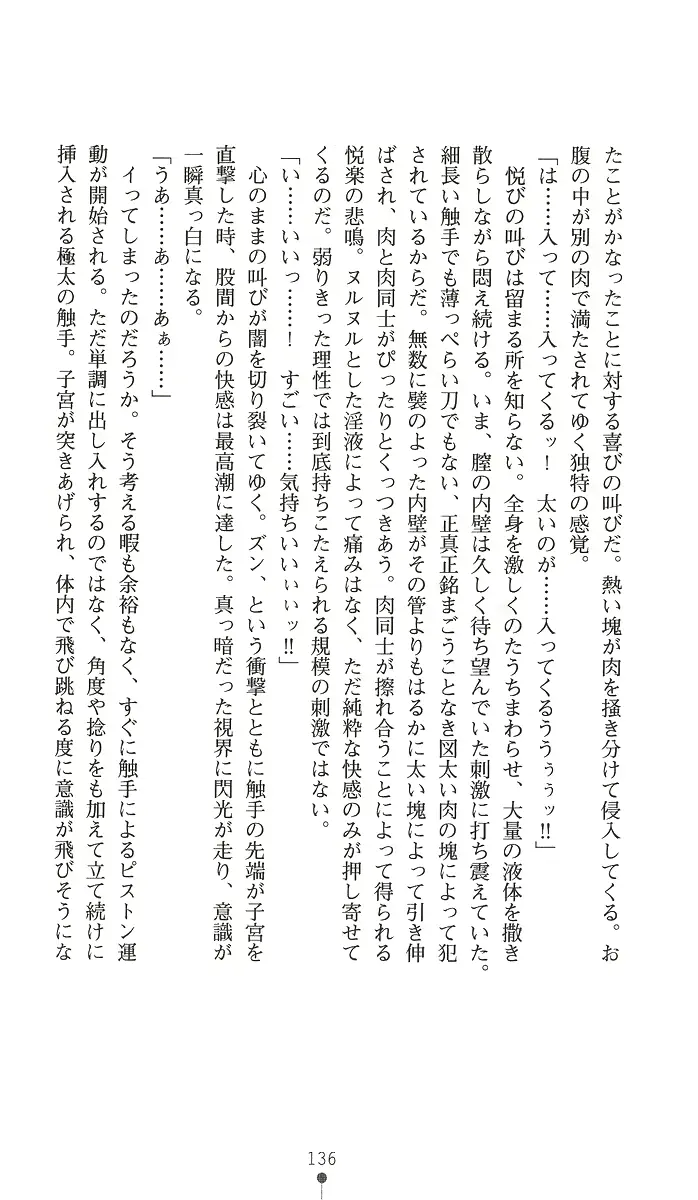 たことがかなったことに対する喜びの叫びだ。熱い塊が肉を掻き分けて侵入してくる。お
腹の中が別の肉で満たされてゆく独特の感覚。
「は……入って……入ってくるッ！　太いのが……入ってくるううぅぅッ!!」
　悦びの叫びは留まる所を知らない。全身を激しくのたうちまわらせ、大量の液体を撒き
散らしながら悶え続ける。いま、膣の内壁は久しく待ち望んでいた刺激に打ち震えていた。
細長い触手でも薄っぺらい刀でもない、正真正銘まごうことなき図太い肉の塊によって犯
されているからだ。無数に襞のよった内壁がその管よりもはるかに太い塊によって引き伸
ばされ、肉と肉同士がぴったりとくっつきあう。肉同士が擦れ合うことによって得られる
悦楽の悲鳴。ヌルヌルとした淫液によって痛みはなく、ただ純粋な快感のみが押し寄せて
くるのだ。弱りきった理性では到底持ちこたえられる規模の刺激ではない。
「い……いいっ……！　すごい……気持ちいいぃぃッ!!」
　心のままの叫びが闇を切り裂いてゆく。ズン、という衝撃とともに触手の先端が子宮を
直撃した時、股間からの快感は最高潮に達した。真っ暗だった視界に閃光が走り、意識が
一瞬真っ白になる。
「うあ……あ……あぁ……」
　イってしまったのだろうか。そう考える暇も余裕もなく、すぐに触手によるピストン運
動が開始される。ただ単調に出し入れするのではなく、角度や捻りをも加えて立て続けに
挿入される極太の触手。子宮が突きあげられ、体内で飛び跳ねる度に意識が飛びそうにな
136